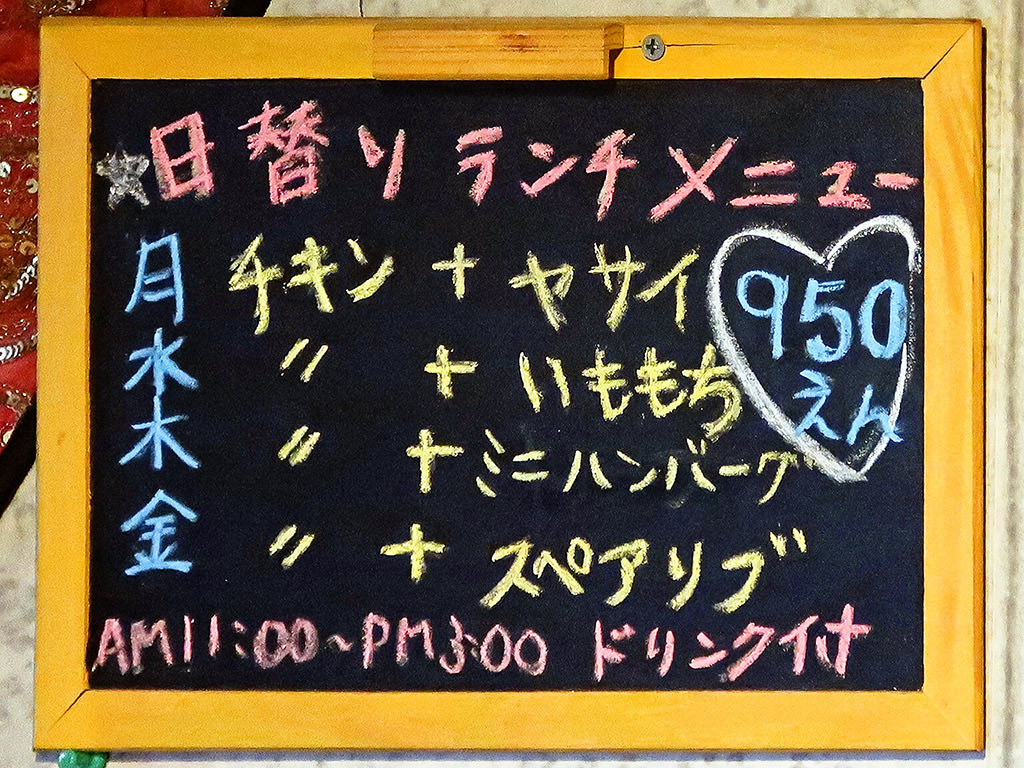 ★日替りランチメニュー
月 チキン + ヤサイ
950
えん
水 〃 + いももち
木 〃 + ミニハンバーグ
金 〃 + スペアリブ
AM11:00~PM3:00 ドリンク付